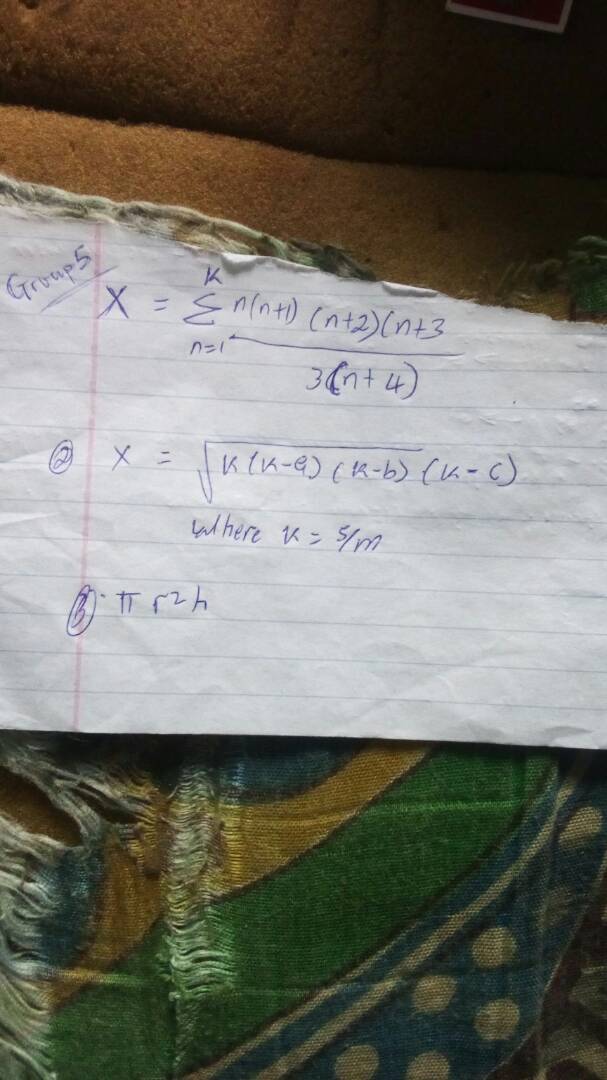 Group 5
X = K Σ n=1 n(n+1) (n+2)(n+3
3(n+4)
② X = √K(K-a) (K-b) (K-c)
Where K = S/m
③. π r2h